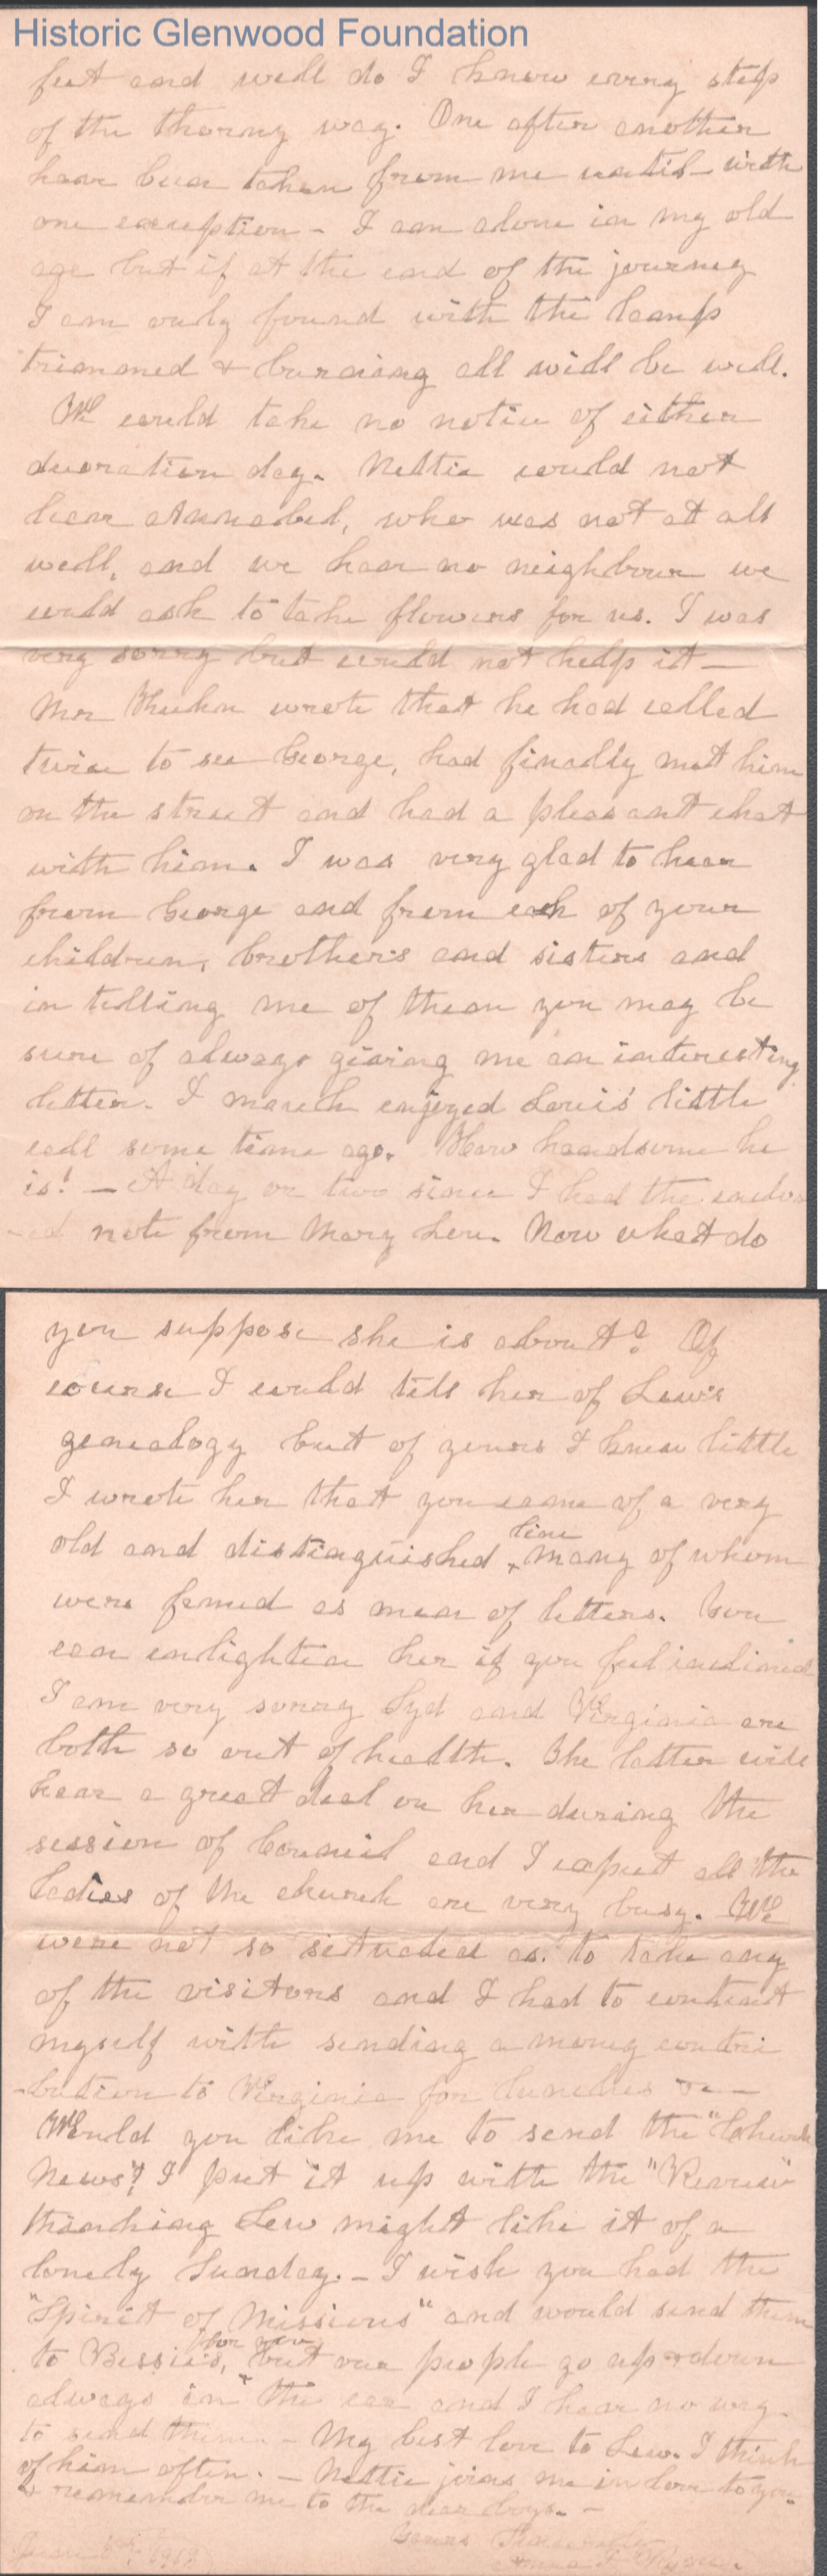 Historic Glenwood Foundation
feet and well do I know every step
of the thorny way. One after another
have been taken from me until with
one exception - I am alone in my old
age but if at the end of the journey
I am only found with the lamp
trimmed & burning all will be well.
We could take no notice of either
decoration day. Nettie could not
leave Annabel, who was not at all
well, and we have no neighbour we
could ask to take flowers for us. I was
very sorry but could not help it —
Mr wrote that he had called
twice to see George, had finally met him
on the street and had a pleasant chat
with him. I was very glad to hear
from George and from each of your
children, brothers and sisters and
in telling me of them you may be
sure of always giving me an interesting
letter. I much enjoyed Louis' little
call some time ago. How handsome he
is! — A day or two since I had the enclos
-ed note from Mary Lou. Now what do
you suppose she is about? Of
course I could tell her of Lew's
genealogy but of yours I knew little
I wrote her that you came of a very
old and distinguished line + many of whom
were famed as men of letters. You
can enlighten her if you feel inclined
I am very sorry Syd and Virginia are
both so out of health. The latter will
have a great deal on her during the
session of Council and I expect all the
ladies of the church are very busy. We
were not so situated as to take any
of the visitors and I had to content
myself with sending a money contri
-bution to Virginia for lunches &c —
Would you like me to send the "Church
News"? I put it up with the "Review"
thinking Lew might like it of a
lonely Sunday. — I wish you had the
"Spirit of Missions" and would send them
to Bessie's, for you but our people go up & down
always in the car and I have no way
to send them. — My best love to Lew. I think
of him often. — Nettie joins me in love to you
& remember me to the dear boys. —
Yours Sincerely
Anna
June